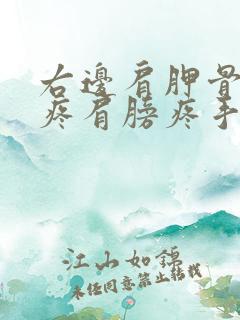 右邊肩胛骨
疼肩膀疼手
江山如錦
未经同意禁止转载